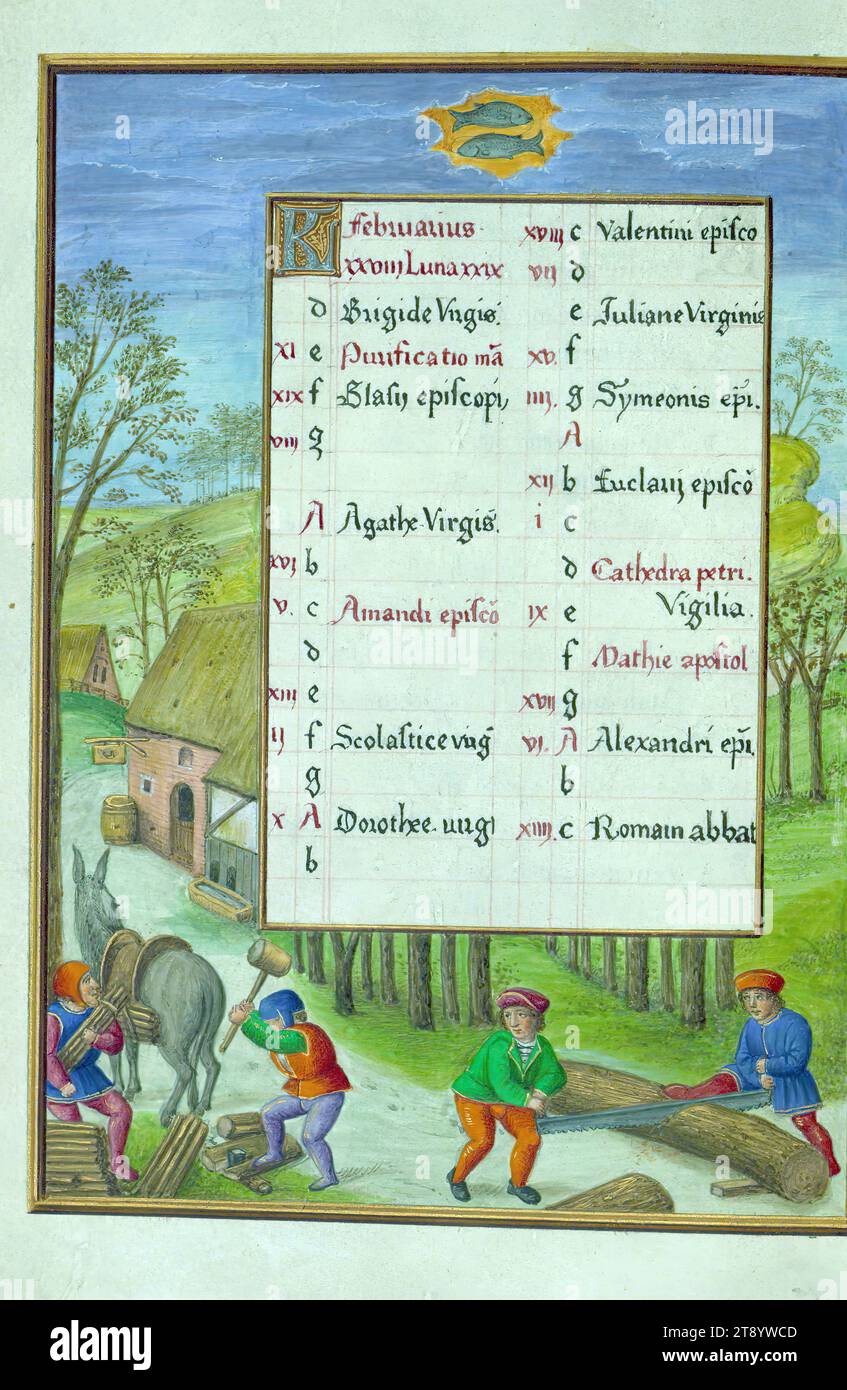 K Februarius
xxviij Luna xxix
d Brigide Virgis.
xi e Purificatio mā
xix f Blasij episcopi
viij g
A Agathe Virgis.
xvj b
v. c Amandi episcō
d
xiij e
ij f Scolastice virg
g
x A Dorothee virgi
b
xviij c Valentini episco
vij d
e Iuliane Virginis
xv. f
iiij. g Symeonis epi.
A
xij b Euclarij episcō
i c
d Cathedra petri.
ix e Vigilia.
f Mathie apostol
xvij g
vj. A Alexandri epi.
b
xiiij. c Romain abbat
alamy
Image ID: 2T8YWCD
www.alamy.com